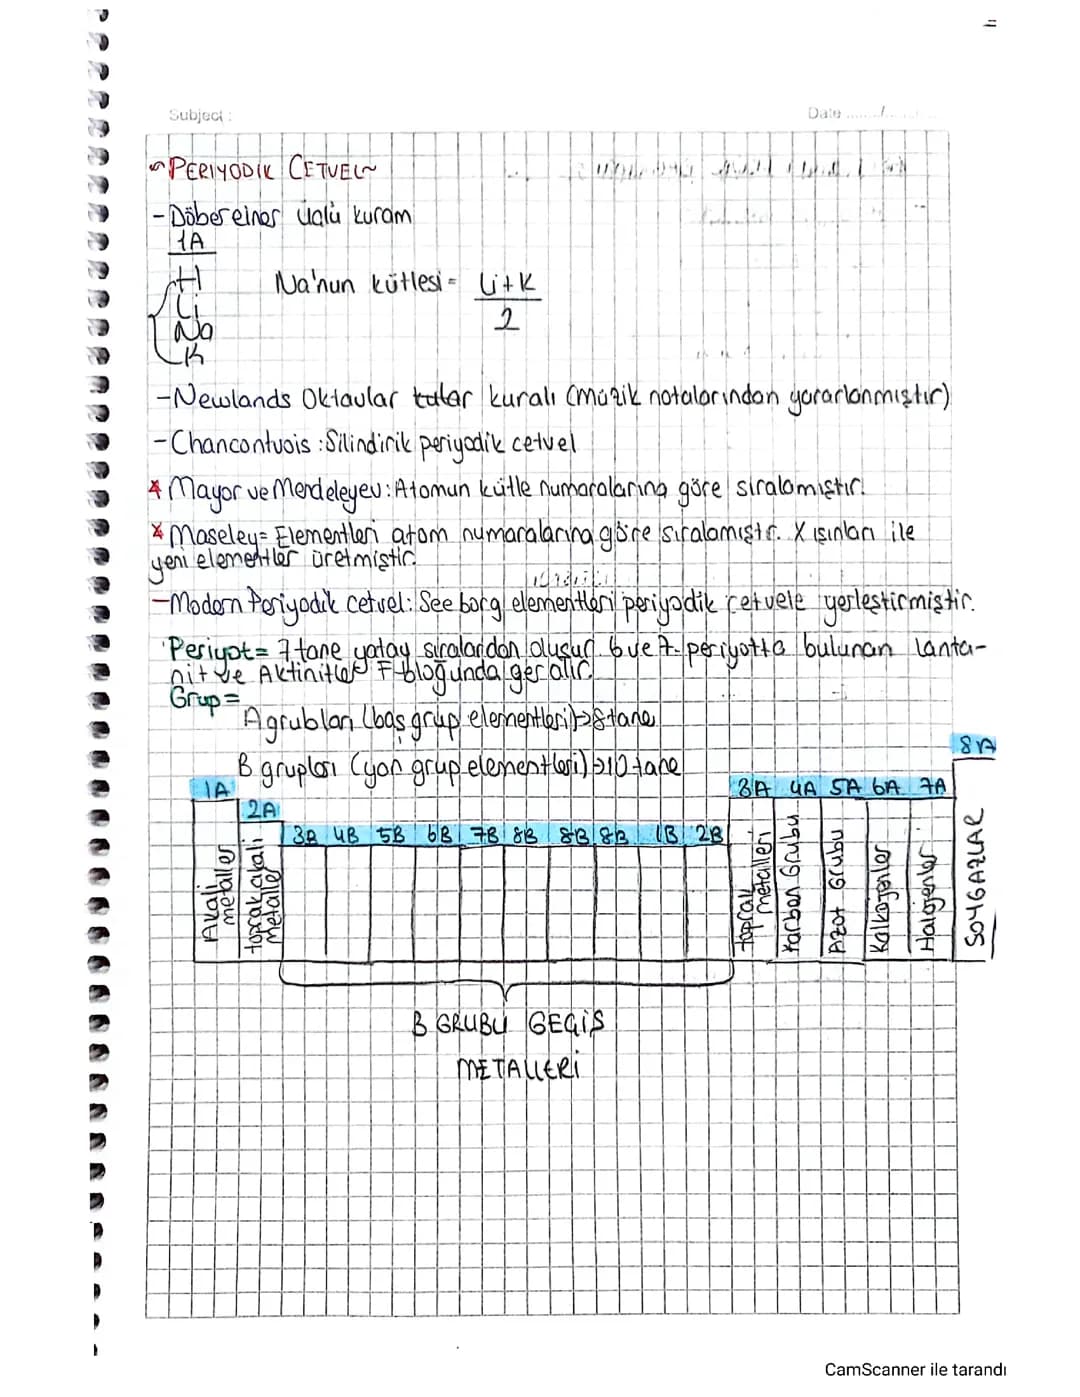 Subject :
Date ....../......
~PERİYODİK CETVEL~
-Döbereiner üçlü kuram
1A
H
Li
Na
K
Na'nun kütlesi = Li+K
2
-Newlands Oktavlar kuralı (müzik notalarından yararlanmıştır)
-Chancontuois : Silindirik periyodik cetvel
* Mayor ve Mendeleyev : Atomun kütle numaralarına göre sıralamıştır.
* Moseley= Elementleri atom numaralarına göre sıralamıştır. X ışınları ile
yeni elementler üretmiştir.
-Modern Periyodik cetvel: See borg elementleri periyodik cetvele yerleştirmiştir.
Periyot= 7 tane yatay sıralardan oluşur. 6 ve 7. periyotta bulunan Lanta-
nit ve Aktinitler F bloğunda yer alır.
Grup=
A grubları (baş grup elementleri)→8 tane
B grupları (yan grup elementleri)→10 tane
1A 2A 3B 4B 5B 6B 7B 8B 8B 8B 1B 2B 3A 4A 5A 6A 7A 8A
Akali metaller
toprak akali metaller
toprak metalleri
Karbon Grubu
Azot Grubu
Kalkojenler
Halojenler
SOYGAZLAR
B GRUBU GEÇİŞ
METALLERİ
CamScanner ile tarandı